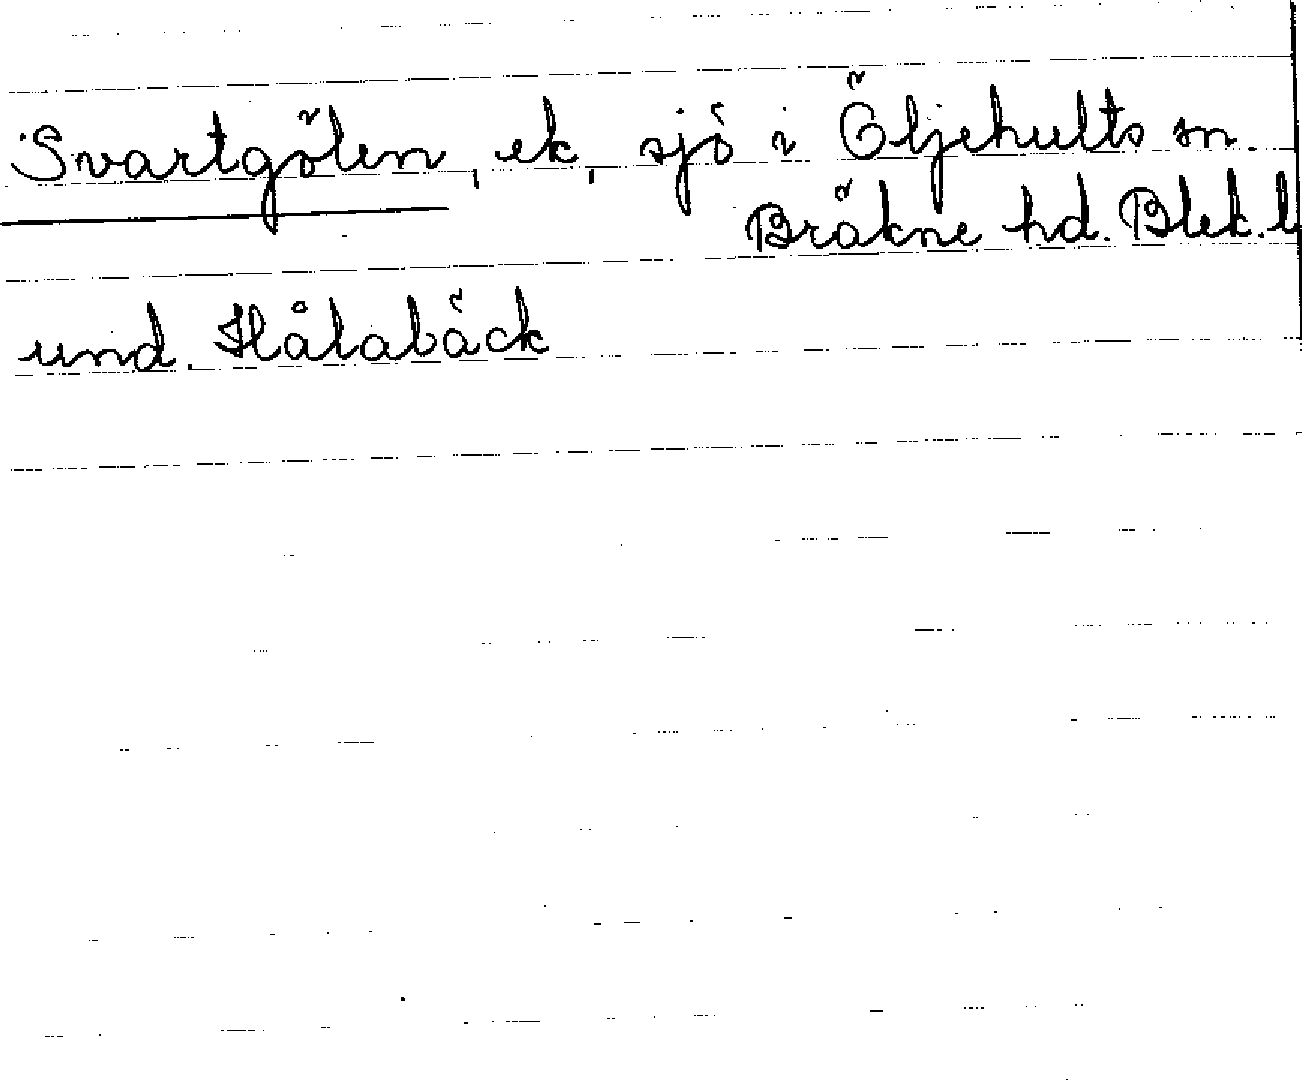 Svartgölen, ek, sjö i Öljehults sn.
Bräkne hd. Blek. l
und. Hålabäck